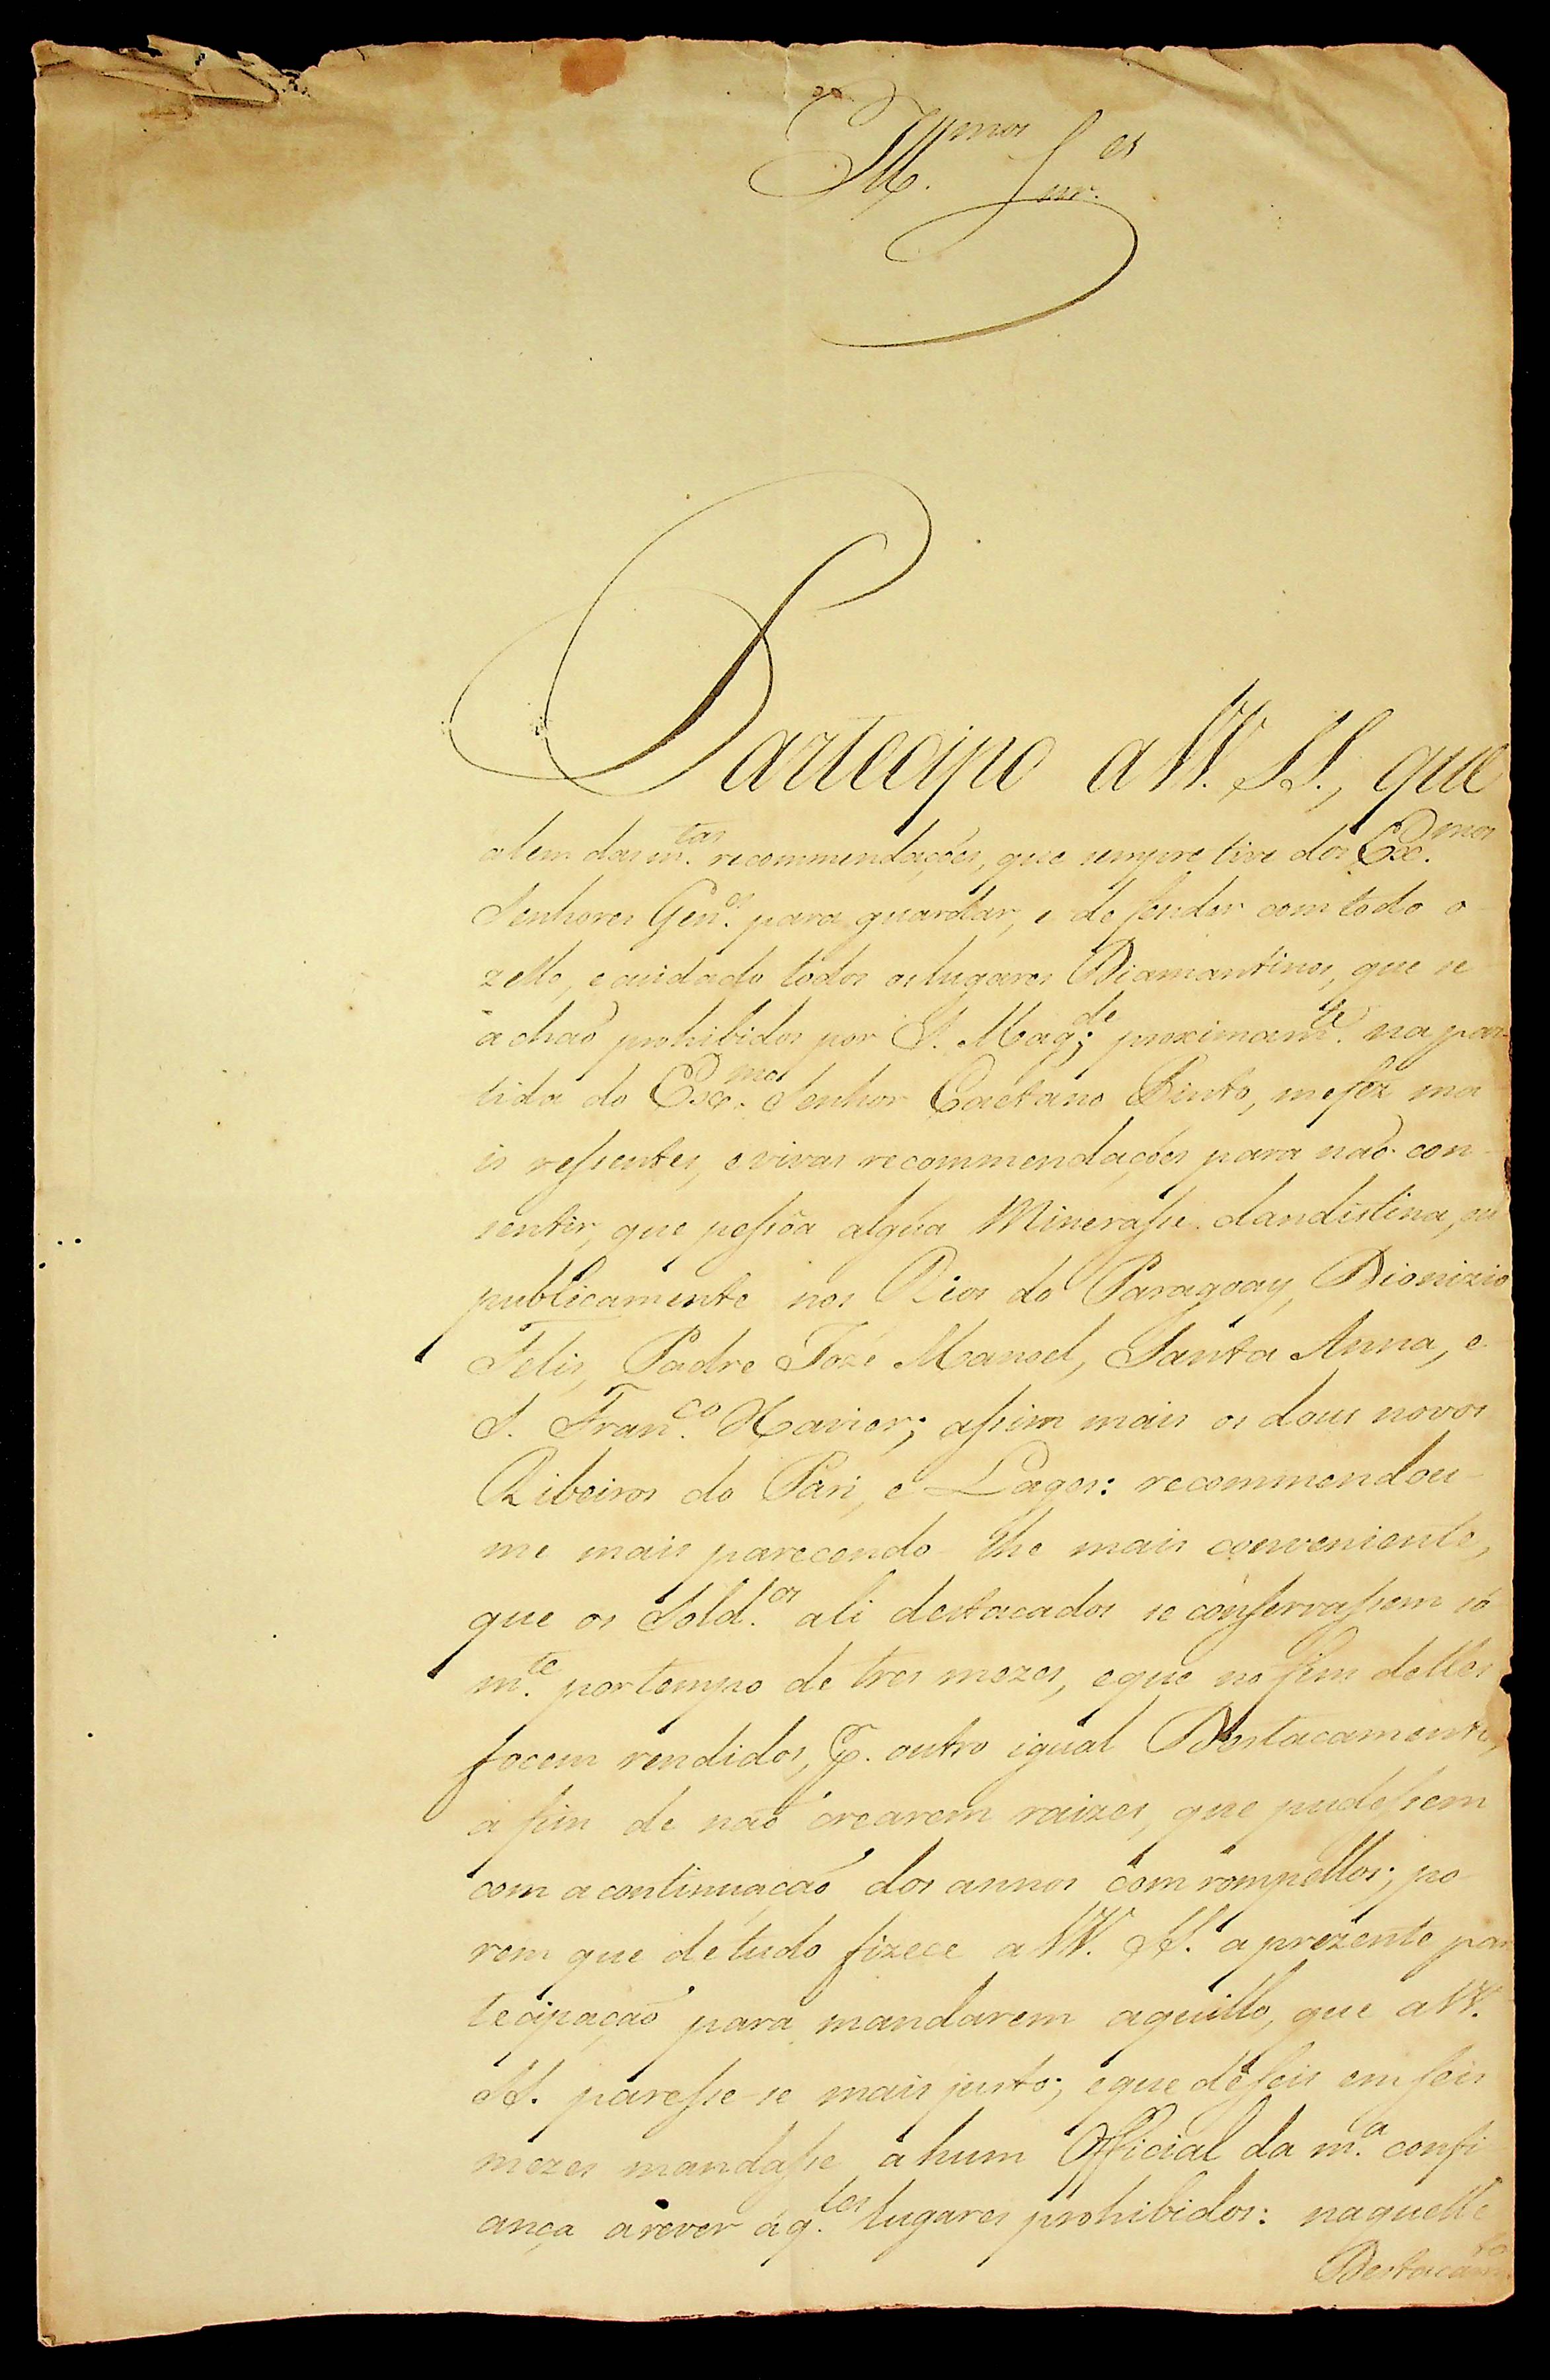 Ill.mos Snr.es
Partecipo a VV. SS., que
alem das m.tas recommendações, que sempre tive dos Exc.mos
Senhores Gen.es para guardar, e defender com todo o
zello, e cuidado todos os lugares Diamantinos, que se
achaõ prohibidos por S. Mag.de; proximam.te na par-
tida do Exc.mo Senhor Caetano Pinto, me fez ma
is ressentes, e vivas recommendações para naõ con-
sentir, que pessôa algúa Minerasse clandistina, ou
publicamente nos Rios do Paragoay, Dionizio
Felis, Padre Jozé Manoel, Santa Anna, e
S. Fran.co Xavier; assim mais os dous novos
Ribeiros do Pari, e Lages: recommendou-
me mais parecendo-lhe mais conveniente,
que os Sold.os ali destacados se conservassem só
m.te por tempo de tres mezes, e que no fim delles
focem rendidos, p. outro igual Destacamento,
a fim de naõ crearem raizes, que pudessem
com a continuaçaõ dos annos comrompellos; po
rem que de tudo fizece a VV. SS. a prezente par
tecipaçaõ para mandarem aquillo, que a VV.
SS. paresse-se mais justo; e que de seis em seis
mezes mandasse a hum Official da m.a confi
ança a rever áq.les lugares prohibidos: naquelle
Destacam.to